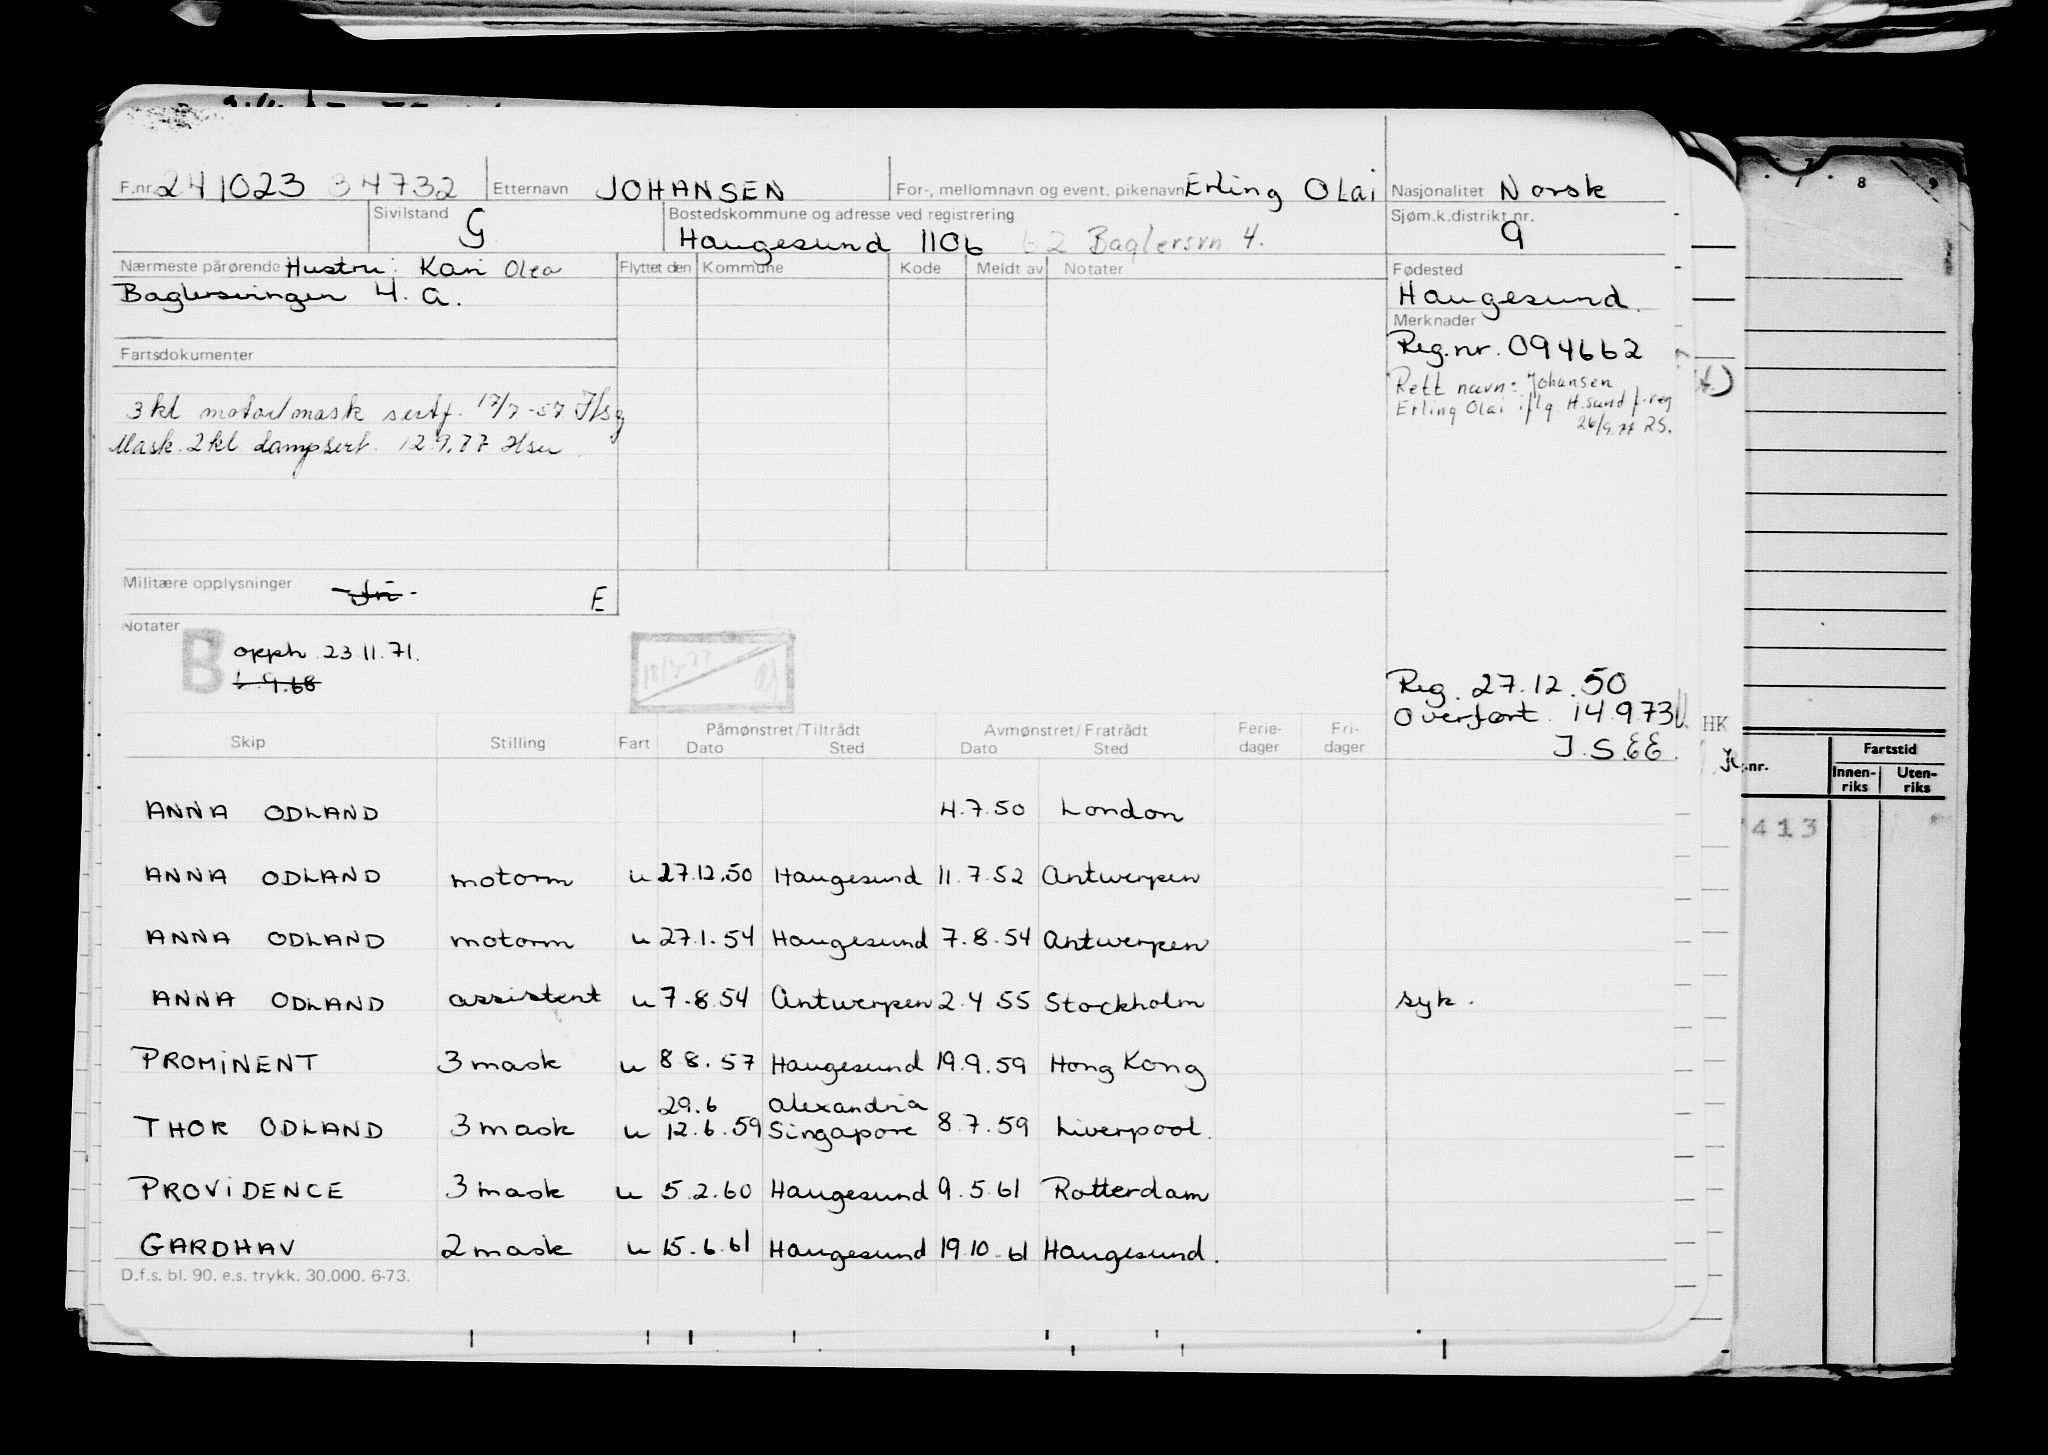 F.nr. 241023 34732 Etternavn JOHANSEN For-, mellomnavn og event. pikenavn Erling Olai Nasjonalitet Norsk
Sivilstand G Bostedskommune og adresse ved registrering Sjøm.k.distrikt nr. 9
Haugesund 1106 Baglersvn 4.
Nærmeste pårørende Hustru: Kari Olea Flyttet den Kommune Kode Meldt av Notater Fødested
Baglersvingen 4. a. Haugesund.
Merknader
Reg.nr. 094662
Fartsdokumenter
Rett navn: Johansen
Erling Olai iflg H.sund f.reg
26/9.77 RS.
3 kl motor/mask sertf. 17/7-57
Mask. 2 kl dampsert. 12.9.77
Militære opplysninger E
Notater
B opph 23.11.71.
9.68
Reg. 27.12.50
Overført 14.9.73
HK
Skip Stilling Fart Påmønstret/Tiltrådt Dato Sted Avmønstret/Fratrådt Dato Sted Ferie-dager Fri-dager
ANNA ODLAND 4.7.50 London
ANNA ODLAND motorm u 27.12.50 Haugesund 11.7.52 Antwerpen
ANNA ODLAND motorm u 27.1.54 Haugesund 7.8.54 Antwerpen
ANNA ODLAND assistent u 7.8.54 Antwerpen 2.4.55 Stockholm syk.
PROMINENT 3 mask u 8.8.57 Haugesund 19.9.59 Hong Kong
29.6 Alexandria
THOR ODLAND 3 mask u 12.6.59 Singapore 8.7.59 Liverpool.
PROVIDENCE 3 mask u 5.2.60 Haugesund 9.5.61 Rotterdam
GARDHAV 2 mask u 15.6.61 Haugesund 19.10.61 Haugesund.
D.f.s. bl. 90. e.s. trykk. 30.000. 6-73.
7 8 9
.nr. Fartstid
Innen-riks Uten-riks
413